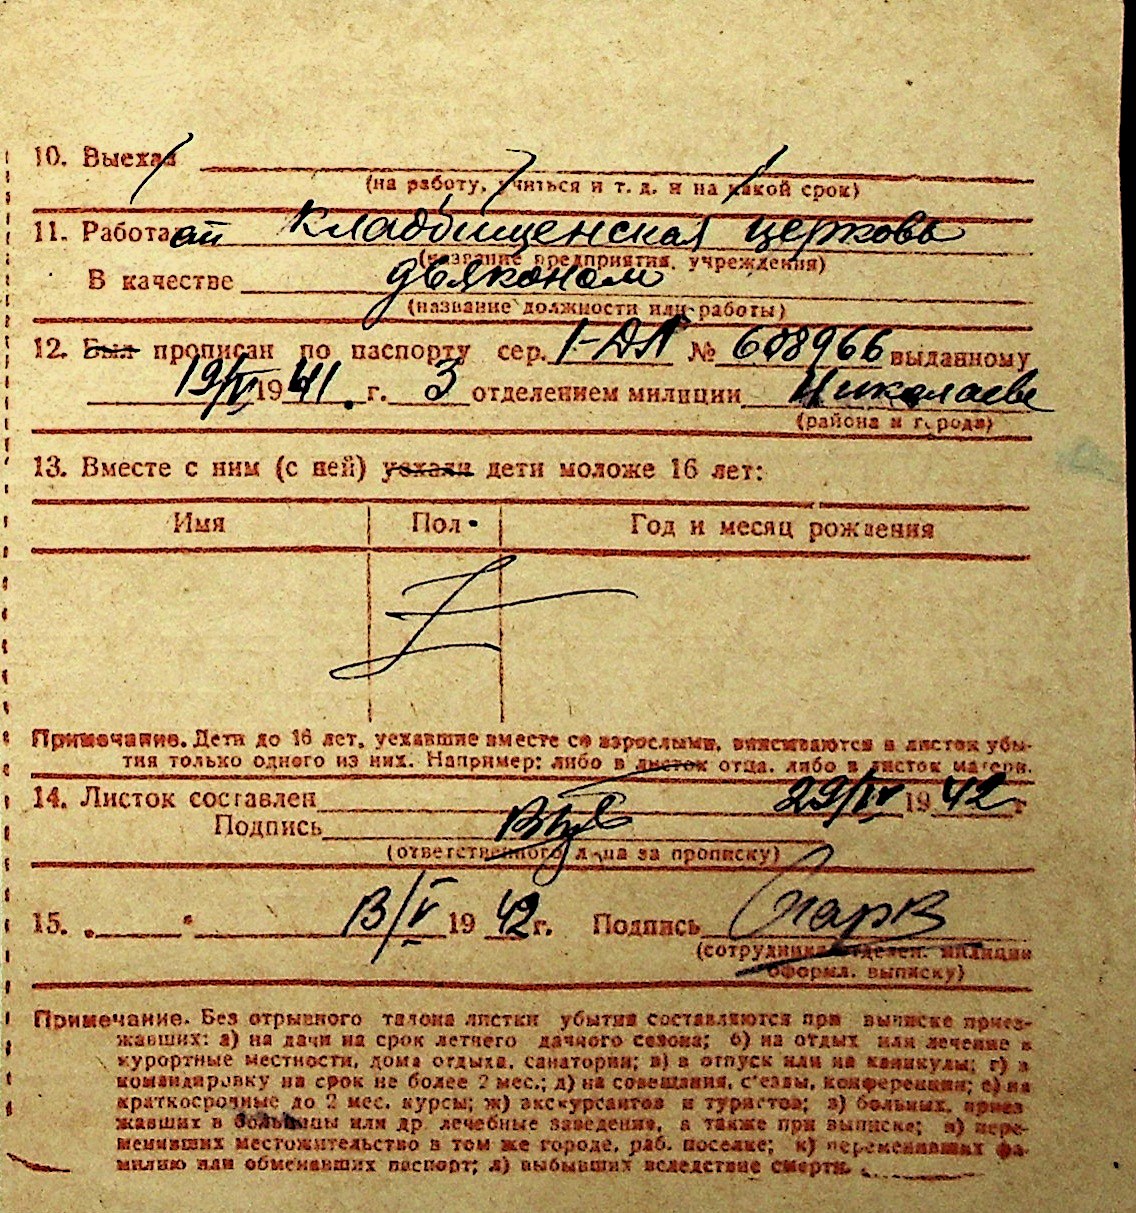 10. Выехал
(на работу, учиться и т. д. и на какой срок)
11. Работает Кладбищенская церковь
(название предприятия, учреждения)
В качестве дьяконом
(название должности или работы)
12. Был прописан по паспорту сер. I-ДЛ № 608966 выданному
19/V 1941. г. 3 отделением милиции Николаева
(района и города)
13. Вместе с ним (с ней) уехали дети моложе 16 лет:
Имя Пол Год и месяц рождения
Примечание. Дети до 16 лет, уехавшие вместе со взрослыми, вписываются в листок убы-
тия только одного из них. Например: либо в листок отца, либо в листок матери.
14. Листок составлен 29/IV 1942 г.
Подпись
(ответственного лица за прописку)
15. 13/V 1942 г. Подпись
(сотрудника отделен. милиции
оформл. выписку)
Примечание. Без отрывного талона листки убытия составляются при выписке приез-
жавших: а) на дачи на срок летнего дачного сезона; б) на отдых или лечение в
курортные местности, дома отдыха, санатории; в) в отпуск или на каникулы; г) в
командировку на срок не более 2 мес.; д) на совещания, с'езды, конференции; е) на
краткосрочные до 2 мес. курсы; ж) экскурсантов и туристов; з) больных, приез
жавших в больницы или др лечебные заведения, а также при выписке; и) пере-
менивших местожительство в том же городе, раб. поселке; к) переменивших фа-
милию или обменявших паспорт; л) выбывших вследствие смерти.